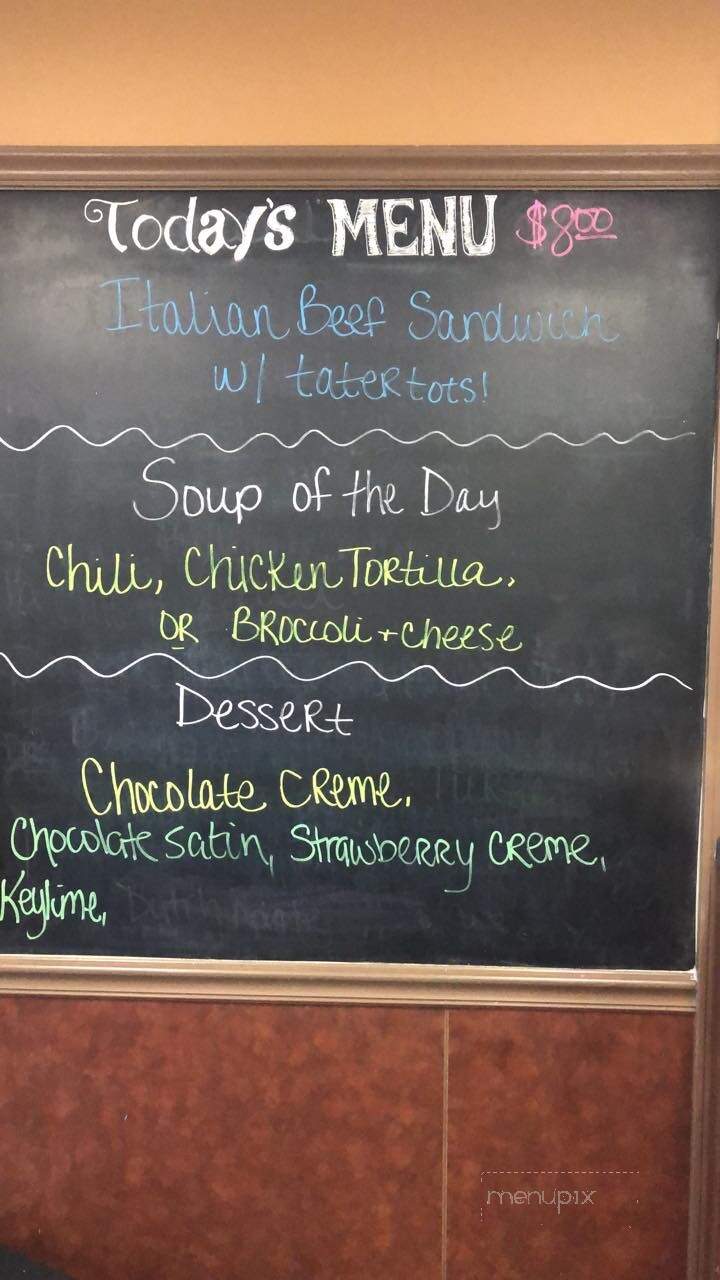 Today's MENU $8.00
Italian Beef Sandwich
w/ tater tots!
Soup of the Day
Chili, Chicken Tortilla,
OR Broccoli + cheese
Dessert
Chocolate Creme,
Chocolate Satin, Strawberry Creme,
Keylime,
menupix